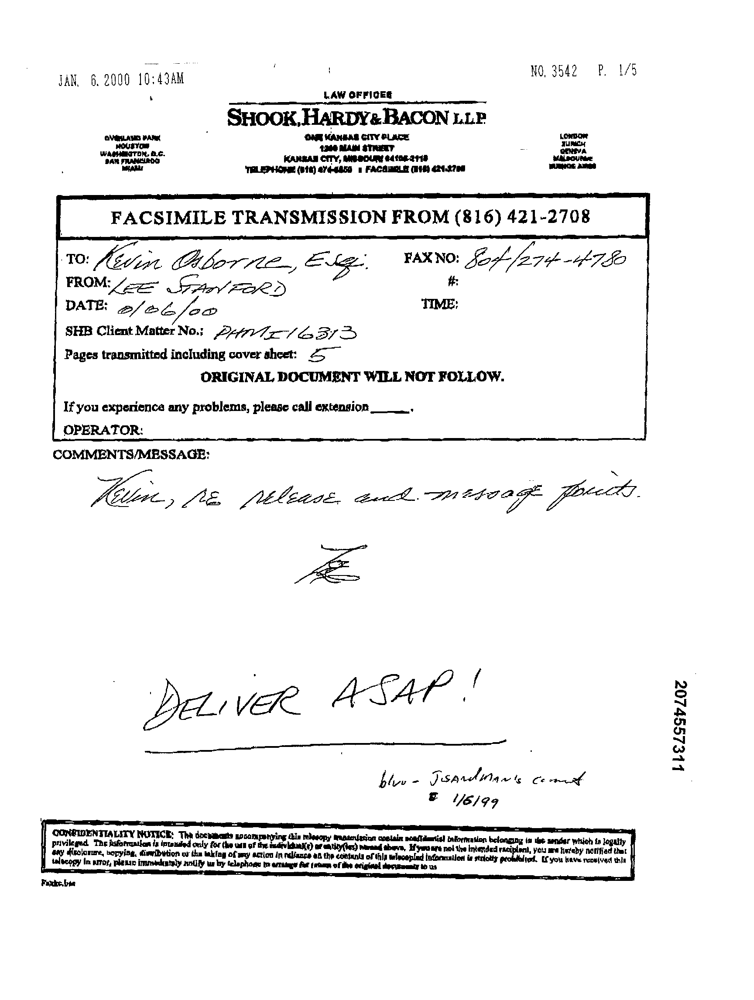 JAN. 6. 2000 10:43AM
NO. 3542 P. 1/5
LAW OFFICES
SHOOK, HARDY & BACON L.L.P.
OVERLAND PARK
HOUSTON
WASHINGTON, D.C.
SAN FRANCISCO
MIAMI
ONE KANSAS CITY PLACE
1200 MAIN STREET
KANSAS CITY, MISSOURI 64105-2118
TELEPHONE (816) 474-6550 FACSIMILE (816) 421-2708
LONDON
ZURICH
GENEVA
MELBOURNE
BUENOS AIRES
FACSIMILE TRANSMISSION FROM (816) 421-2708
TO: Kevin Osborne, Esq. FAX NO: 804/274-4780
FROM: LEE STANFORD #:
DATE: 0/06/00 TIME:
SHB Client Matter No.: PHMI 16313
Pages transmitted including cover sheet: 5
ORIGINAL DOCUMENT WILL NOT FOLLOW.
If you experience any problems, please call extension _____.
OPERATOR:
COMMENTS/MESSAGE:
Kevin, RE release and message points.
DELIVER ASAP!
JSANDMAN's
1/6/99
2074557311
CONFIDENTIALITY NOTICE: The documents accompanying this telecopy transmission contain confidential information belonging to the sender which is legally
privileged. The information is intended only for the use of the individual(s) or entity(ies) named above. If you are not the intended recipient, you are hereby notified that
any disclosure, copying, distribution or the taking of any action in reliance on the contents of this telecopied information is strictly prohibited. If you have received this
telecopy in error, please immediately notify us by telephone to arrange for return of the original documents to us